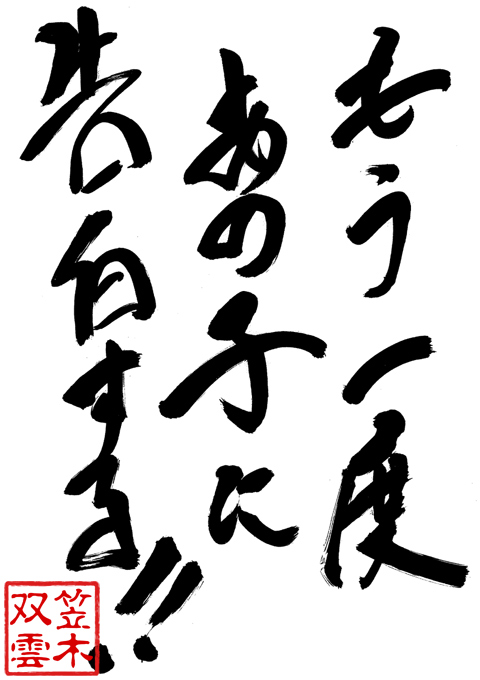 もう一度
あの子に
告白する!!
笠木
双雲